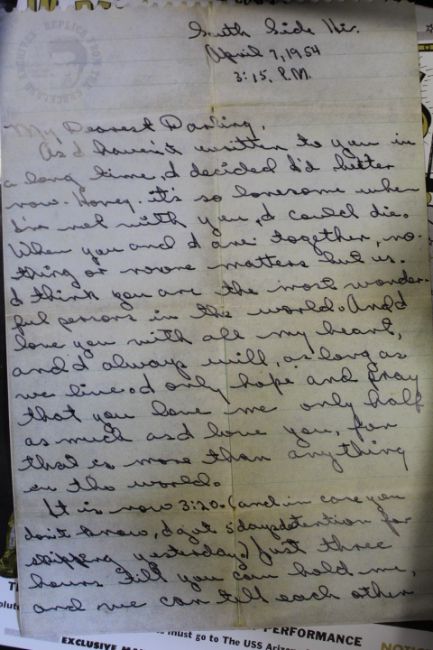 REPLICA FROM THE
ARCHIVES
South Side Hi.
April 7, 1954
3:15 P.M.
My Dearest Darling,
As I haven't written to you in
a long time, I decided I'd better
now. Honey. it's so lonesome when
I'm not with you, I could die.
When you and I are together, no-
thing or noone matters but us.
I think you are the most wonder-
ful person in the world. And I
love you with all my heart,
and I always will, as long as
we live. I only hope and pray
that you love me only half
as much as I love you, for
that is more than anything
in the world.
It is now 3:20. (and in case you
don't know, I got 5 days detention for
skipping yesterday) Just three
hours till you can hold me,
and we can tell each other
must go to The USS Ariz
PERFORMANCE
EXCLUSIVE
NOTIC